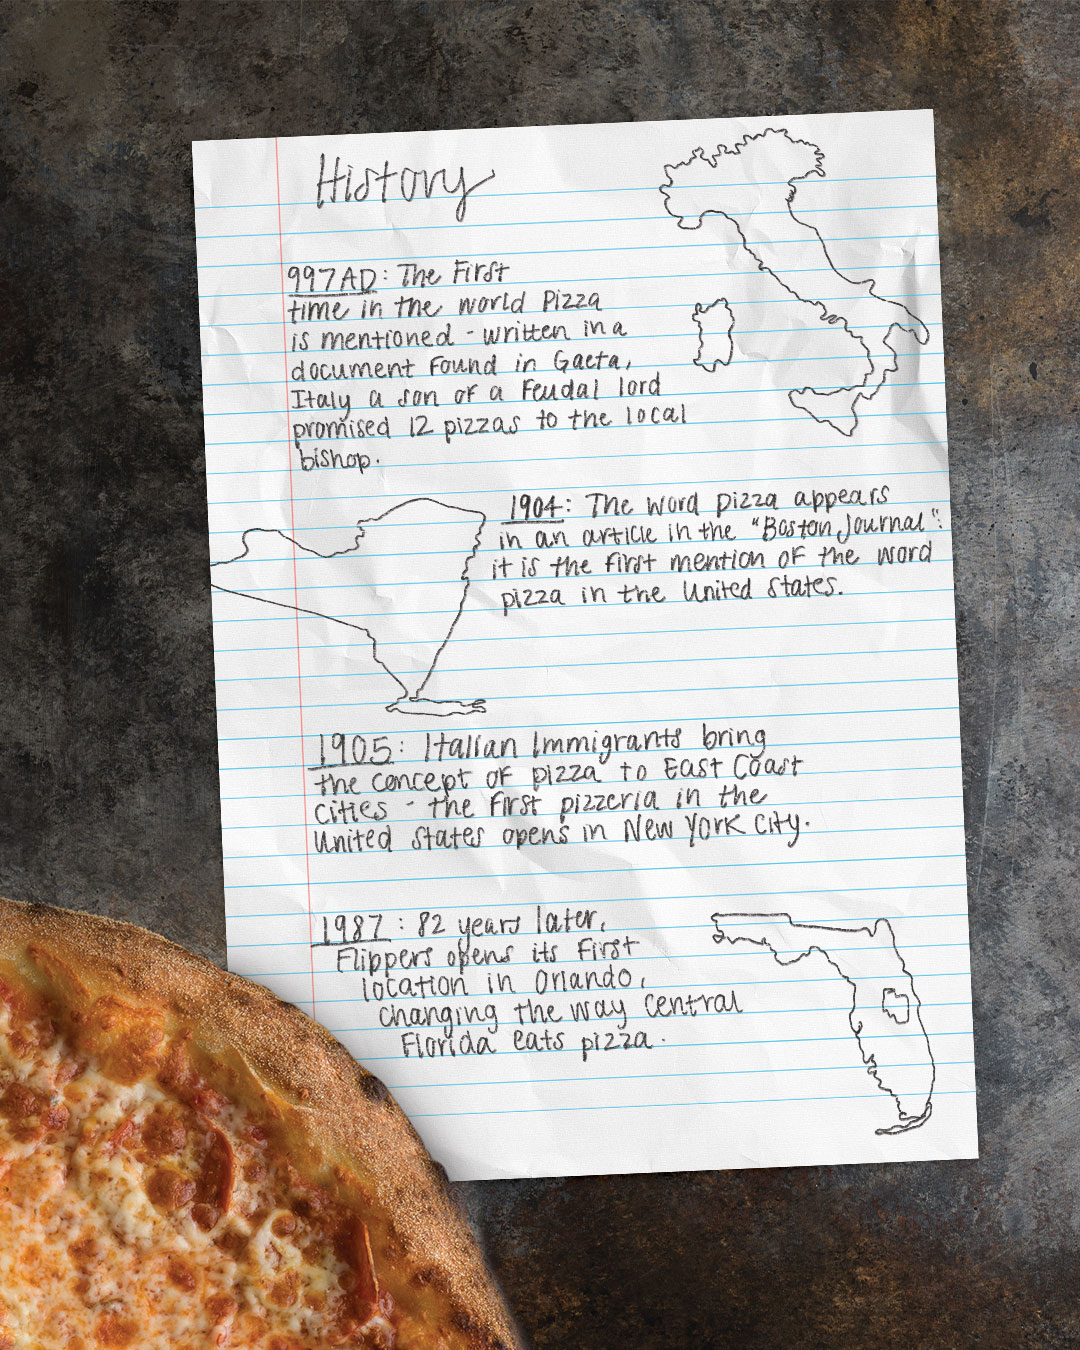 History
997AD: The First
time in the world Pizza
is mentioned - written in a
document Found in Gaeta,
Italy a son of a Feudal lord
promised 12 pizzas to the local
bishop.
1904: The word pizza appears
in an article in the "Boston Journal":
it is the first mention of the word
pizza in the United States.
1905: Italian Immigrants bring
the concept of pizza to East Coast
cities - the first pizzeria in the
United States opens in New York City.
1987: 82 years later,
Flippers opens its First
location in Orlando,
changing the way Central
Florida eats pizza.